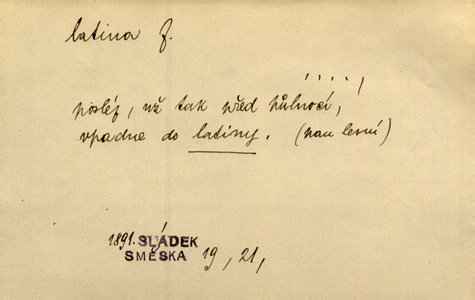 latina f.
. . . . ,
posléz, už tak před půlnocí,
vpadne do latiny. (pan lesní)
1891. SLÁDEK
SMĚSKA 19, 21,